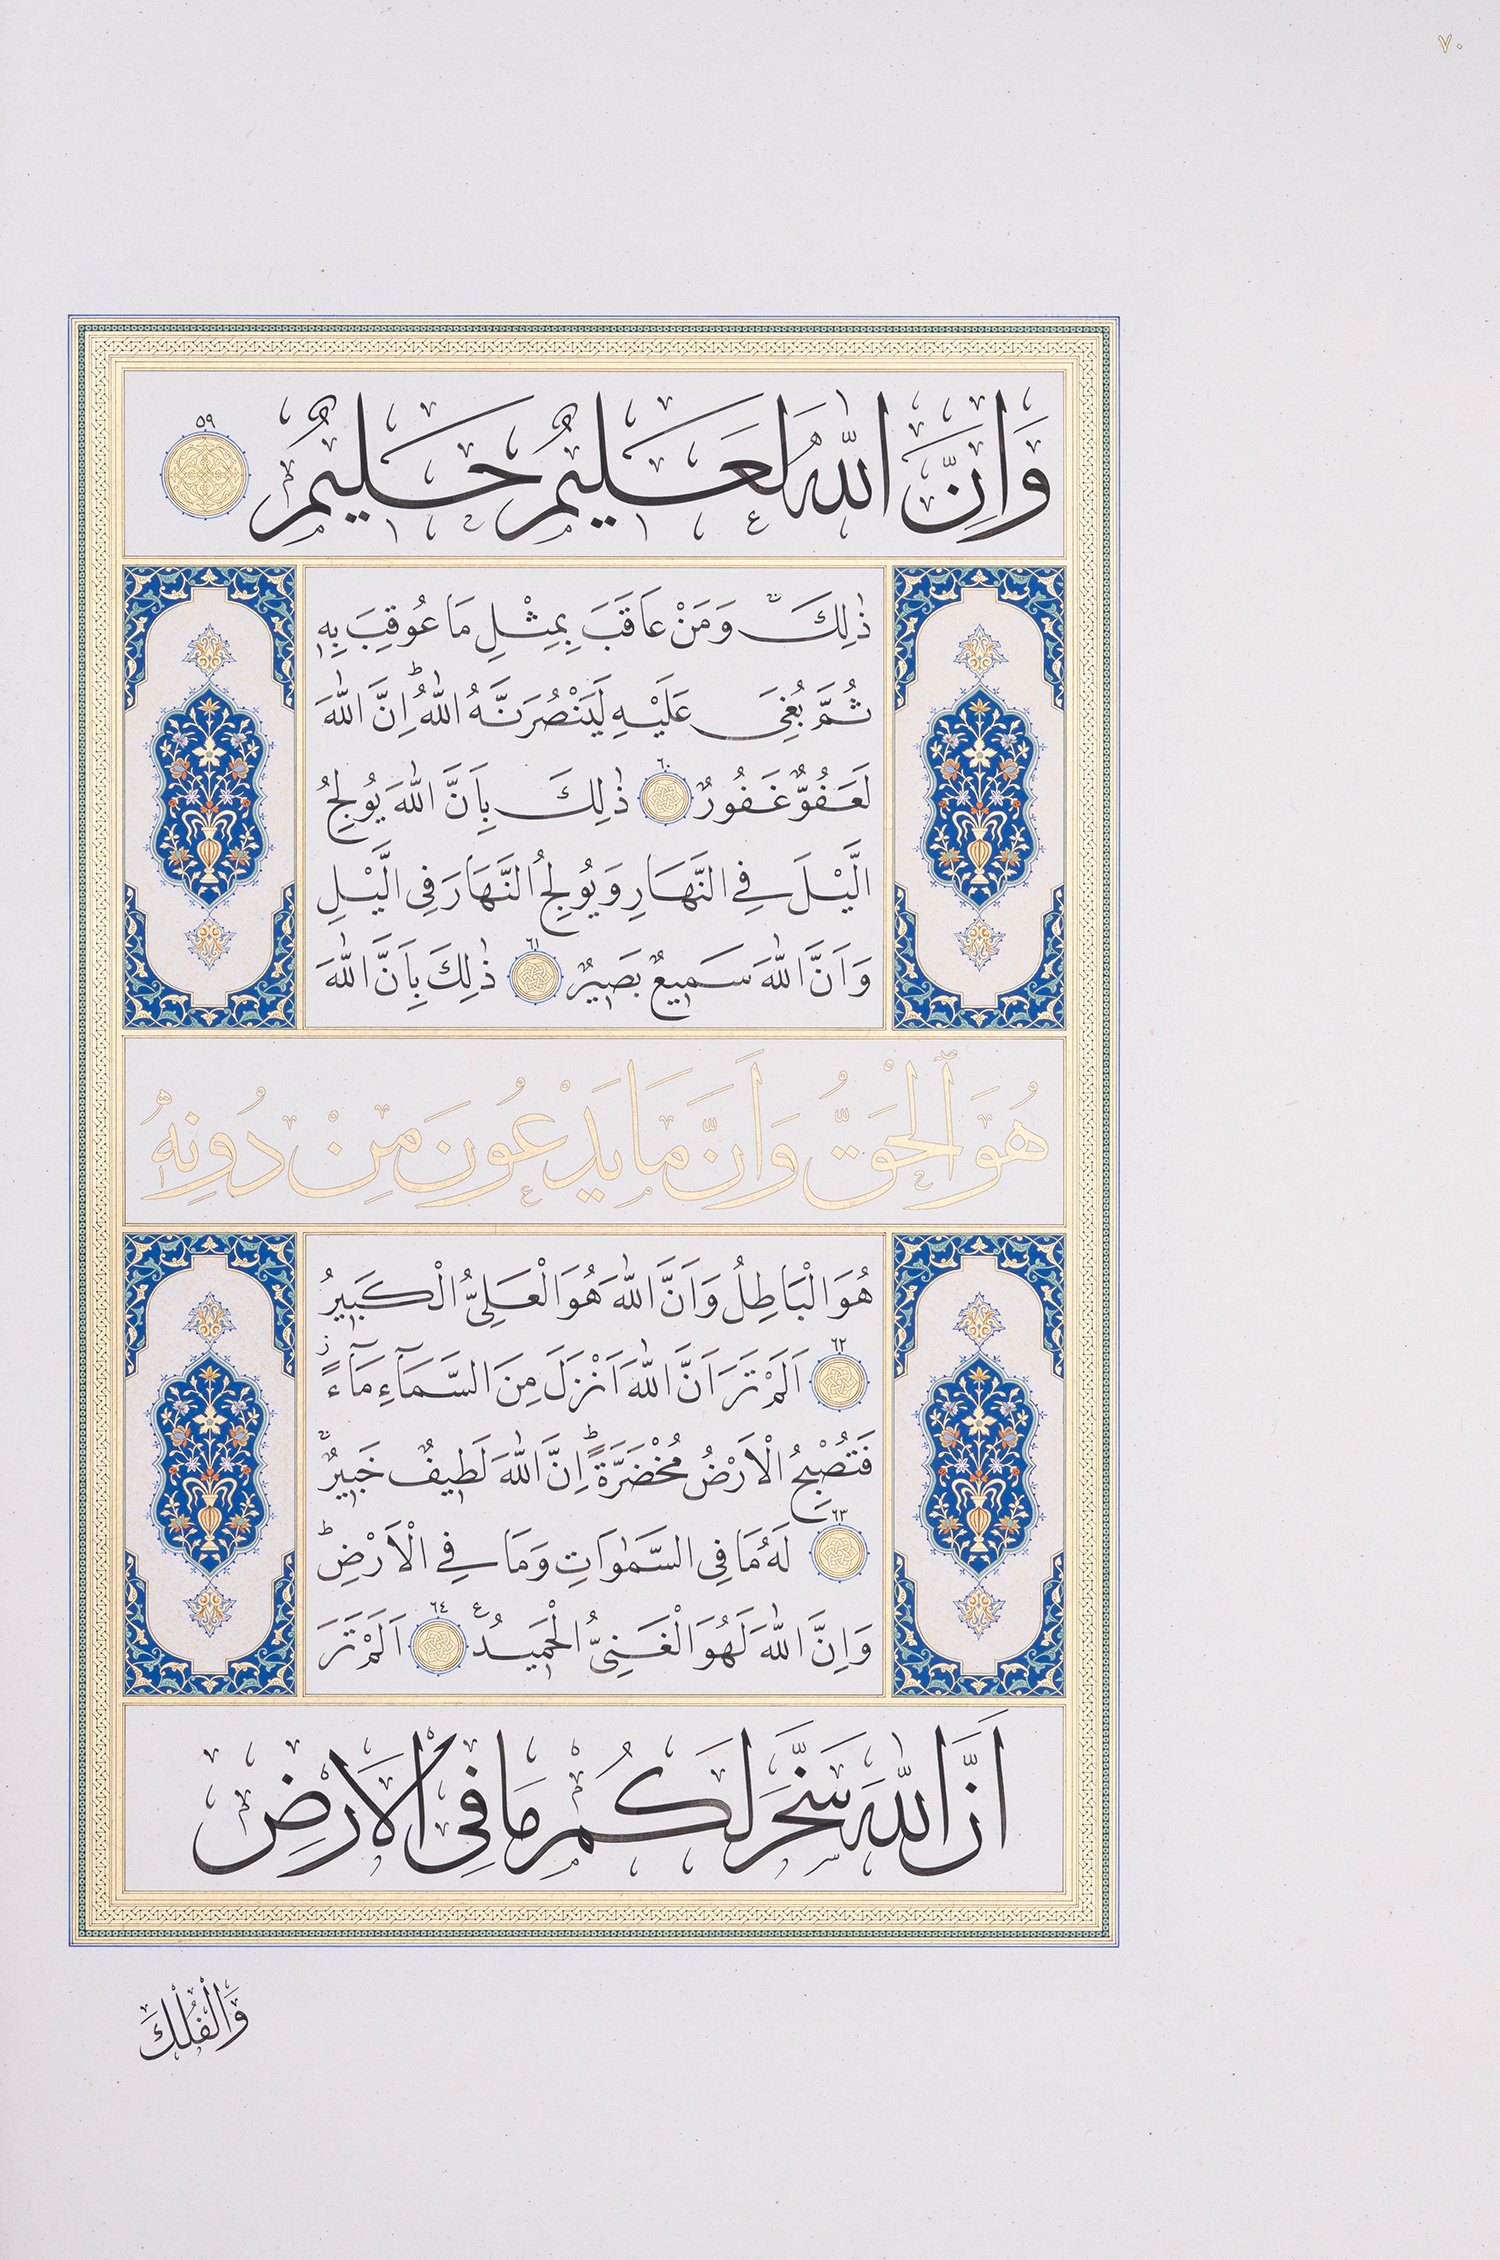 ٧٠
وَاِنَّ اللّٰهَ لَعَلِيمٌ حَلِيمٌ ٥٩
ذٰلِكَ وَمَنْ عَاقَبَ بِمِثْلِ مَا عُوقِبَ بِهِ
ثُمَّ بُغِيَ عَلَيْهِ لَيَنْصُرَنَّهُ اللّٰهُ ط اِنَّ اللّٰهَ
لَعَفُوٌّ غَفُورٌ ٦٠ ذٰلِكَ بِاَنَّ اللّٰهَ يُولِجُ
الَّيْلَ فِي النَّهَارِ وَيُولِجُ النَّهَارَ فِي الَّيْلِ
وَاَنَّ اللّٰهَ سَمِيعٌ بَصِيرٌ ٦١ ذٰلِكَ بِاَنَّ اللّٰهَ
هُوَ ٱلْحَقُّ وَاَنَّ مَا يَدْعُونَ مِنْ دُونِهِ
هُوَ الْبَاطِلُ وَاَنَّ اللّٰهَ هُوَ الْعَلِيُّ الْكَبِيرُ
٦٢ اَلَمْ تَرَ اَنَّ اللّٰهَ اَنْزَلَ مِنَ السَّمَآءِ مَآءً ز
فَتُصْبِحُ الْاَرْضُ مُخْضَرَّةً ط اِنَّ اللّٰهَ لَطِيفٌ خَبِيرٌ
٦٣ لَهُ مَا فِي السَّمٰوَاتِ وَمَا فِي الْاَرْضِ ط
وَاِنَّ اللّٰهَ لَهُوَ الْغَنِيُّ الْحَمِيدُ ع ٦٤ اَلَمْ تَرَ
اَنَّ اللّٰهَ سَخَّرَ لَكُمْ مَا فِي الْاَرْضِ
وَالْفُلْكَ